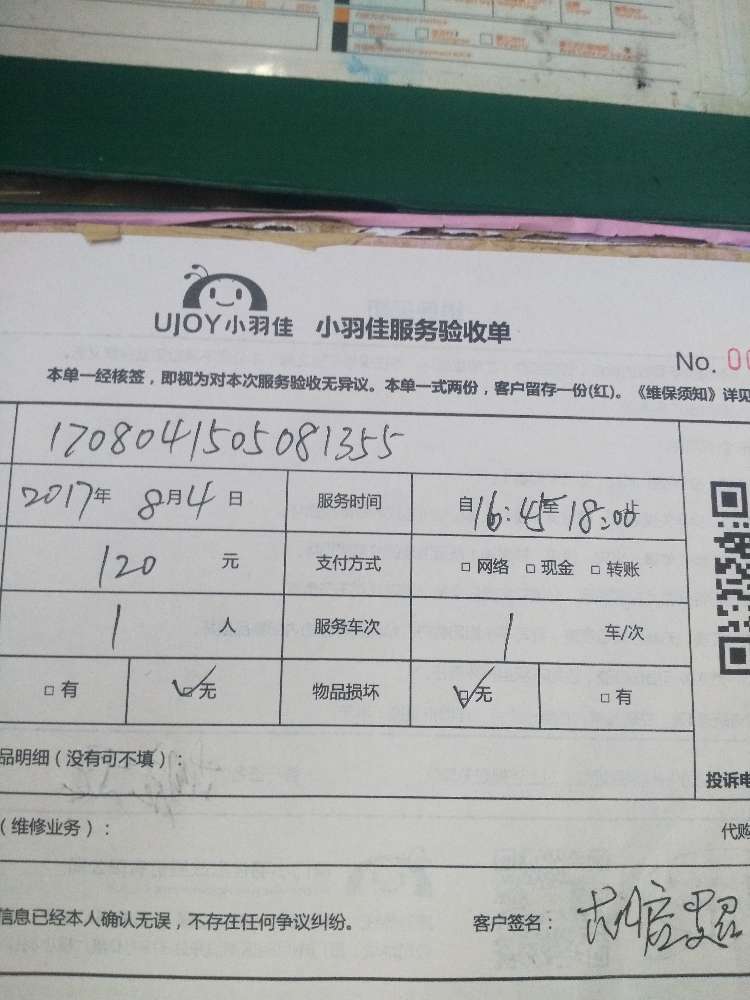 UJOY小羽佳 小羽佳服务验收单
No. 00
本单一经核签，即视为对本次服务验收无异议。本单一式两份，客户留存一份(红)。《维保须知》详见
1708041505081355
2017年 8月4日 服务时间 自16:45至18:00止
120 元 支付方式 □ 网络 □ 现金 □ 转账
1 人 服务车次 1 车/次
□ 有 □无 物品损坏 □无 □ 有
品明细（没有可不填）：
投诉电
（维修业务）：
代购
信息已经本人确认无误，不存在任何争议纠纷。 客户签名：